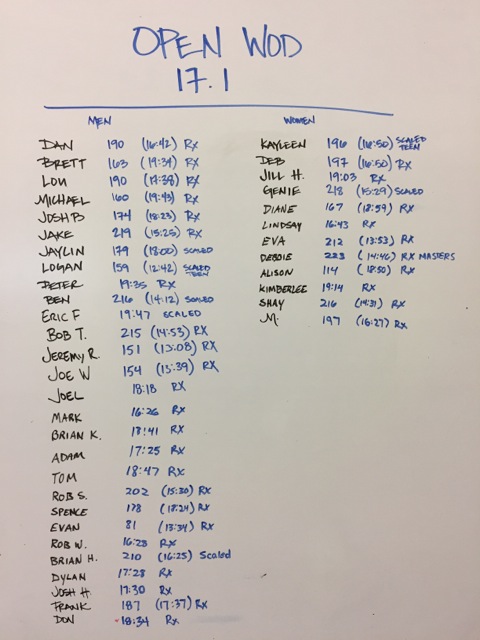 OPEN WOD
17.1
MEN
DAN 190 (16:42) RX
BRETT 163 (19:34) RX
LOU 190 (17:38) RX
MICHAEL 160 (19:43) RX
JOSH B 174 (18:23) RX
JAKE 219 (15:25) RX
JAYLIN 179 (18:00) SCALED
LOGAN 159 (12:42) SCALED TEEN
PETER 19:35 RX
BEN 216 (14:12) SCALED
ERIC F 19:47 SCALED
BOB T. 215 (14:53) RX
JEREMY R. 151 (13:08) RX
JOE W 154 (13:39) RX
JOEL 18:18 RX
MARK 16:26 RX
BRIAN K. 18:41 RX
ADAM 17:25 RX
TOM 18:47 RX
ROB S. 202 (15:30) RX
SPENCE 178 (18:24) RX
EVAN 81 (13:34) RX
ROB W. 16:28 RX
BRIAN H. 210 (16:25) Scaled
DYLAN 17:28 RX
JOSH H. 17:30 RX
FRANK 187 (17:37) RX
DON 18:34 RX
WOMEN
KAYLEEN 196 (16:50) SCALED TEEN
DEB 197 (16:50) RX
JILL H. 19:03 RX
GENIE 218 (15:29) SCALED
DIANE 167 (18:59) RX
LINDSAY 16:43 RX
EVA 212 (13:53) RX
DEBBIE 223 (14:46) RX MASTERS
ALISON 114 (18:50) RX
KIMBERLEE 19:14 RX
SHAY 216 (14:31) RX
M. 197 (16:27) RX